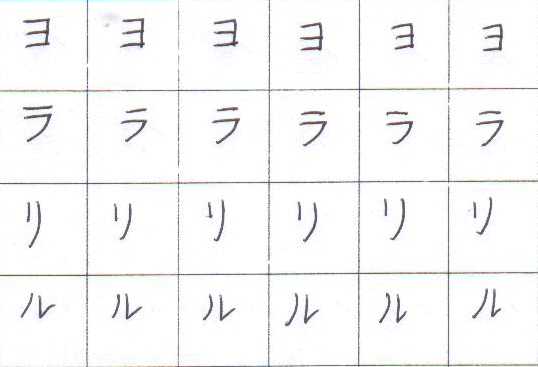 ヨ ヨ ヨ ヨ ヨ ヨ
ラ ラ ラ ラ ラ ラ
リ リ リ リ リ リ
ル ル ル ル ル ル